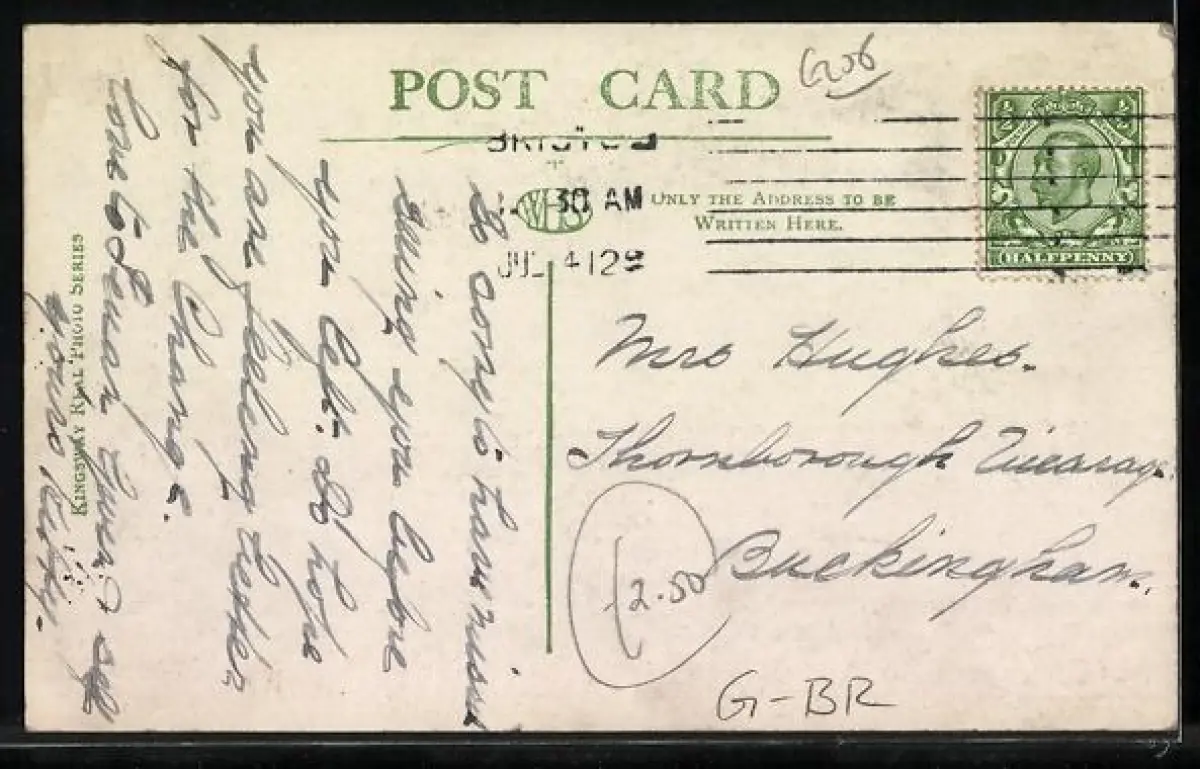 POST CARD
G06
BRISTOL
30 AM
JUL 4 12
WHS
ONLY THE ADDRESS TO BE
WRITTEN HERE.
HALFPENNY
Mrs Hughes.
Thornborough Vicarage
Buckingham.
12.50
G-BR
So sorry to have miss
seeing you before
you left. Do hope
you are feeling better
for the Change.
Love to
self
Yours
KINGSWAY REAL PHOTO SERIES